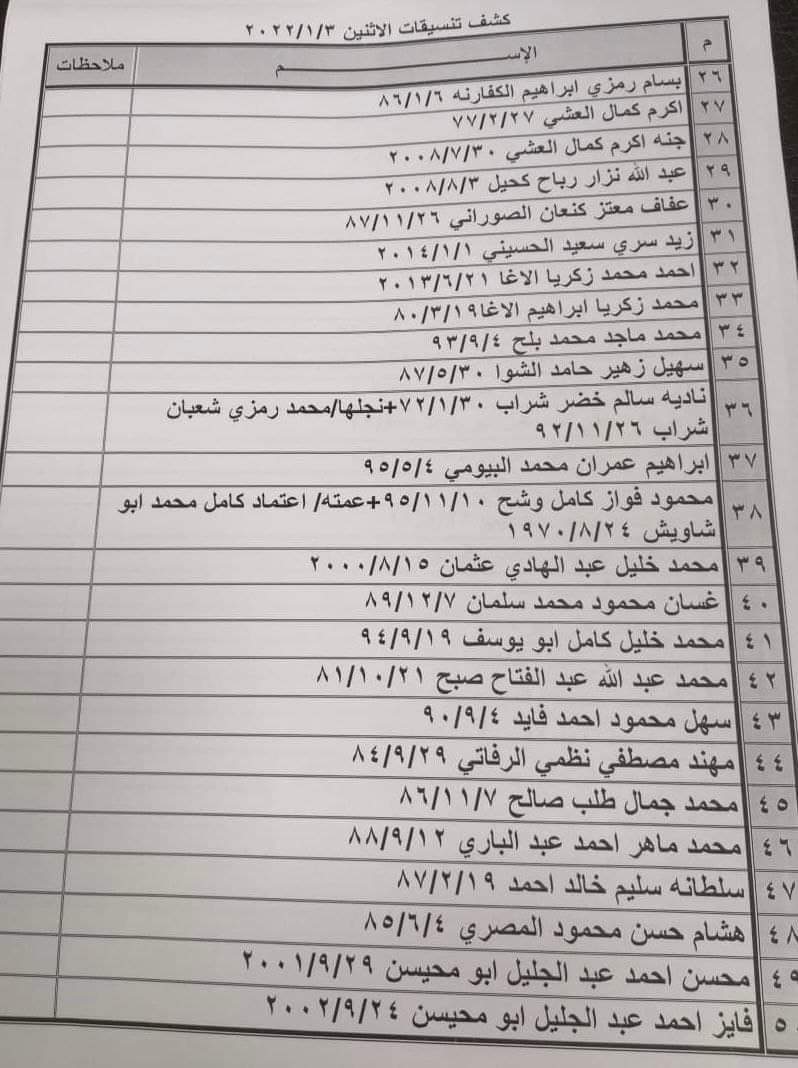 كشف تنسيقات الاثنين ٢٠٢٢/١/٣
م الإســـــم ملاحظات
٢٦ بسام رمزي ابراهيم الكفارنه ٨٦/١/٦
٢٧ اكرم كمال العشي ٧٧/٢/٢٧
٢٨ جنه اكرم كمال العشي ٢٠٠٨/٧/٣٠
٢٩ عبد الله نزار رباح كحيل ٢٠٠٨/٨/٣
٣٠ عفاف معتز كنعان الصوراني ٨٧/١١/٢٦
٣١ زيد سري سعيد الحسيني ٢٠١٤/١/١
٣٢ احمد محمد زكريا الاغا ٢٠١٣/٦/٢١
٣٣ محمد زكريا ابراهيم الاغا٨٠/٣/١٩
٣٤ محمد ماجد محمد بلح ٩٣/٩/٤
٣٥ سهيل زهير حامد الشوا ٨٧/٥/٣٠
٣٦ ناديه سالم خضر شراب ٧٢/١/٣٠+نجلها/محمد رمزي شعبان
شراب ٩٢/١١/٢٦
٣٧ ابراهيم عمران محمد البيومي ٩٥/٥/٤
٣٨ محمود فواز كامل وشح ٩٥/١١/١٠+عمته/ اعتماد كامل محمد ابو
شاويش ١٩٧٠/٨/٢٤
٣٩ محمد خليل عبد الهادي عثمان ٢٠٠٠/٨/١٥
٤٠ غسان محمود محمد سلمان ٨٩/١٢/٧
٤١ محمد خليل كامل ابو يوسف ٩٤/٩/١٩
٤٢ محمد عبد الله عبد الفتاح صبح ٨١/١٠/٢١
٤٣ سهل محمود احمد فايد ٩٠/٩/٤
٤٤ مهند مصطفي نظمي الرفاتي ٨٤/٩/٢٩
٤٥ محمد جمال طلب صالح ٨٦/١١/٧
٤٦ محمد ماهر احمد عبد الباري ٨٨/٩/١٢
٤٧ سلطانه سليم خالد احمد ٨٧/٢/١٩
٤٨ هشام حسن محمود المصري ٨٥/٦/٤
٤٩ محسن احمد عبد الجليل ابو محيسن ٢٠٠١/٩/٢٩
٥٠ فايز احمد عبد الجليل ابو محيسن ٢٠٠٢/٩/٢٤